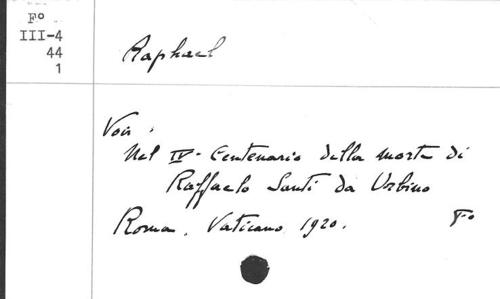 Fº
III-4
44
1
Raphael
Voir :
Nel IV- Centenario della morte di
Raffaelo Santi da Urbino
Roma, Vaticano, 1920.
Fº